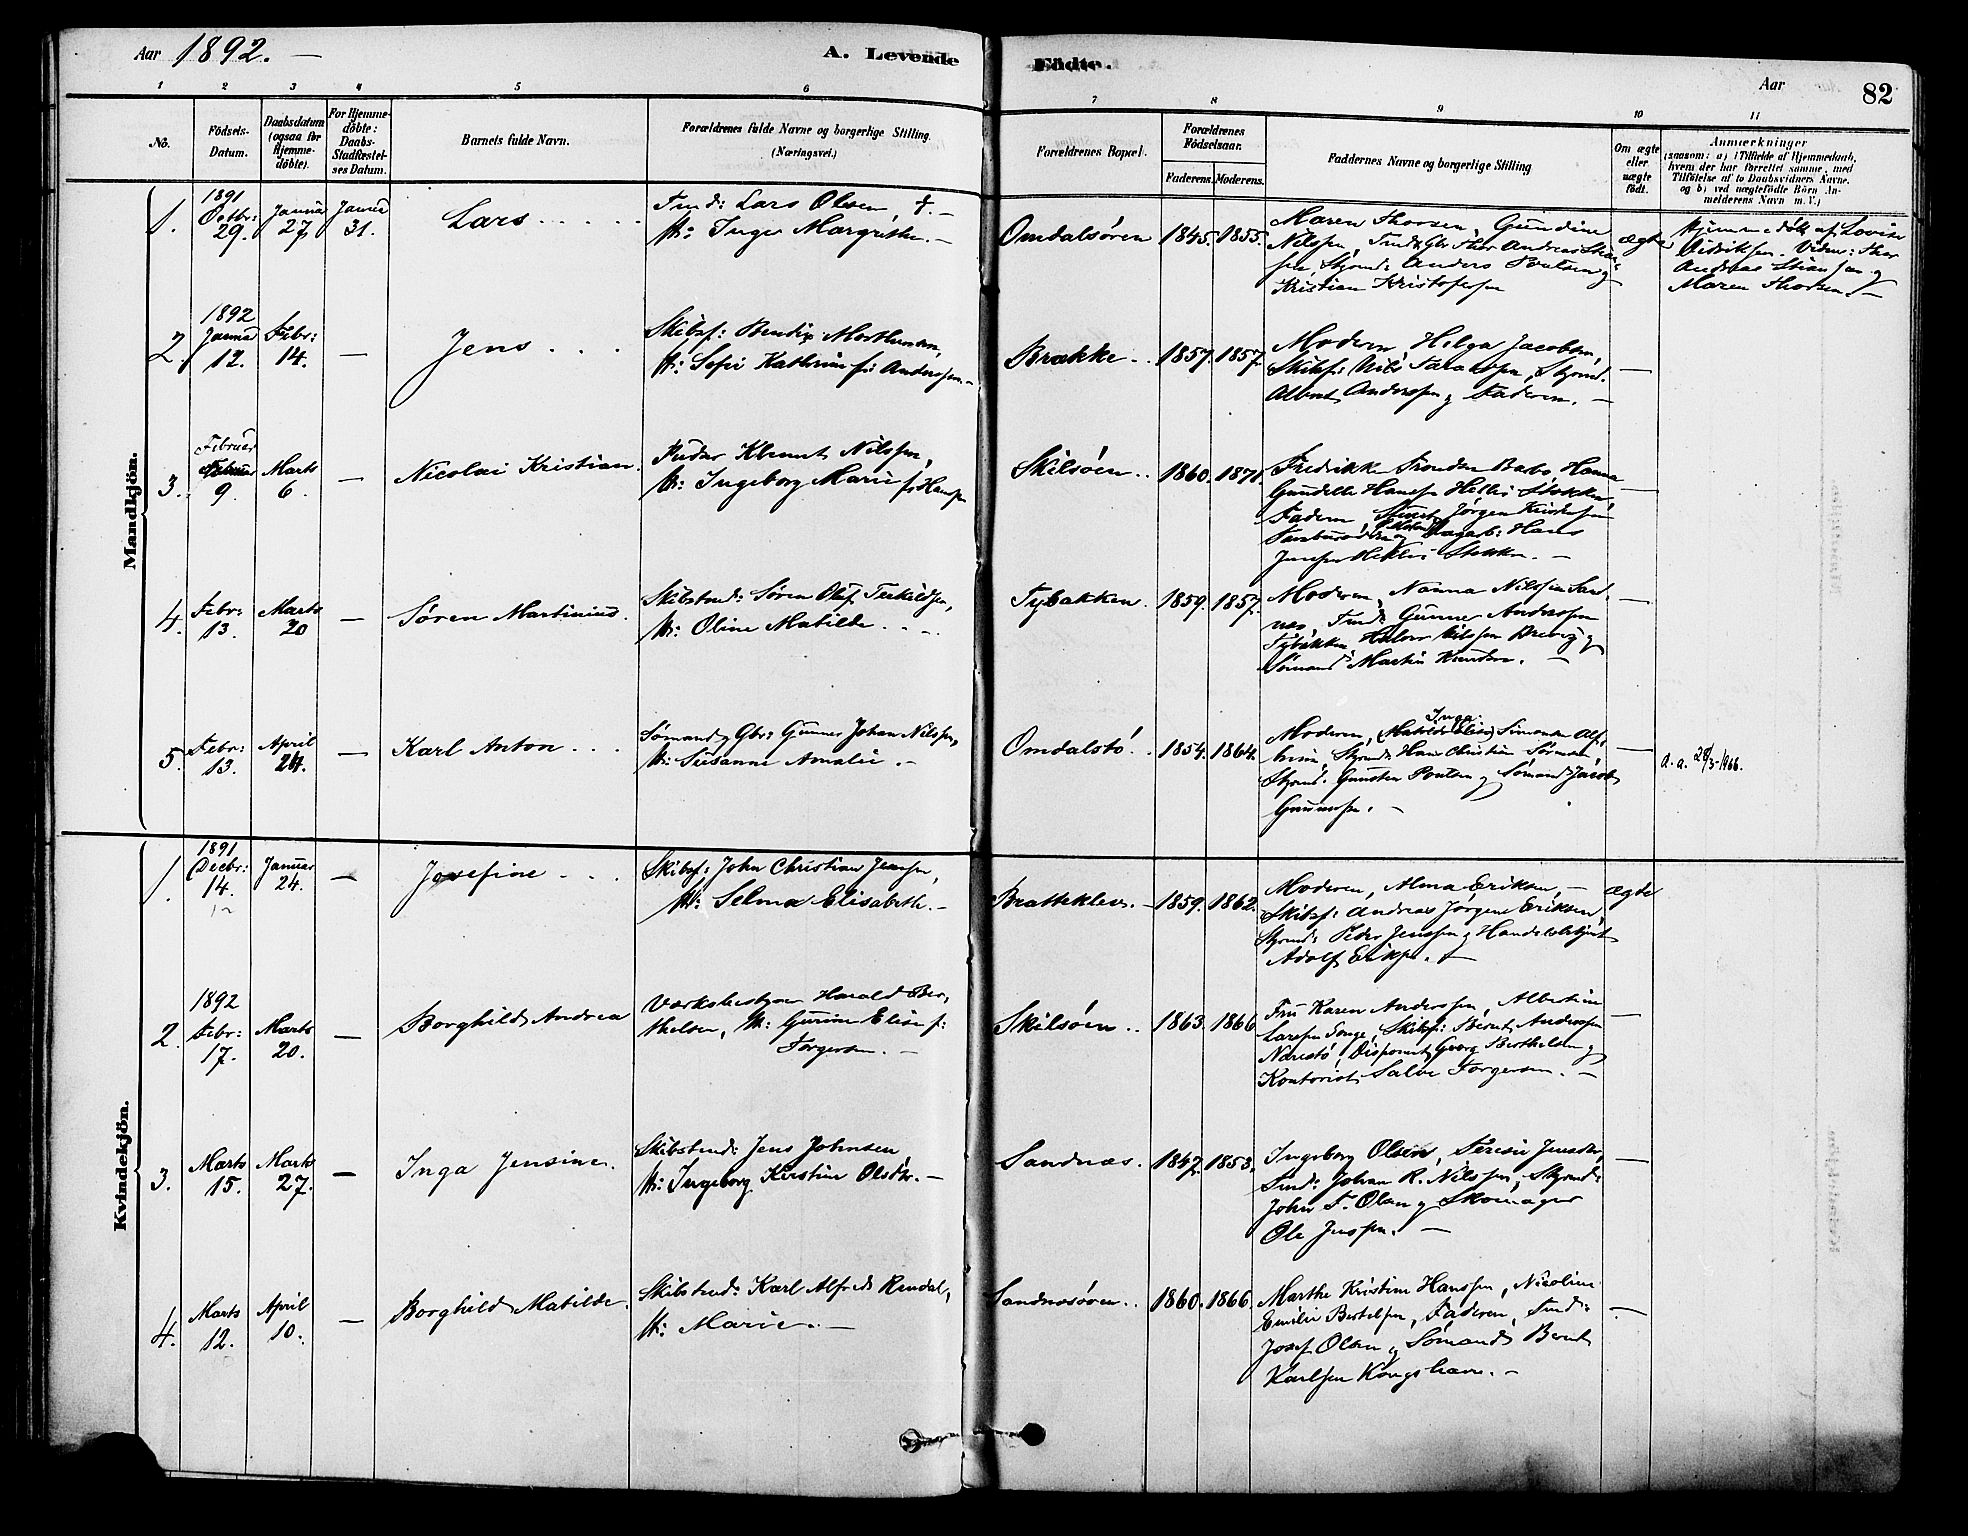 Aar 1892. —
A. Levende Födte.
Aar
82
1 2 3 4 5 6 7 8 9 10 11
No.
Födsels-
Datum.
Daabsdatum
(ogsaa for
Hjemme-
döbte).
For Hjemme-
döbte:
Daabs-
Stadfæstel-
ses Datum.
Barnets fulde Navn.
Forældrenes fulde Navne og borgerlige Stilling.
(Næringsvei.)
Forældrenes Bopæl.
Forældrenes
Födselsaar.
Faderens. Moderens.
Faddernes Navne og borgerlige Stilling
Om ægte
eller
uægte
födt.
Anmærkninger
(saasom: a) i Tilfælde af Hjemmedaab,
hvem der har forrettet samme, med
Tilföielse af to Daabsvidners Navne,
og b) ved uægtefödte Börn An-
melderens Navn m. V.)
Mandkjön.
1.
1891
Octbr:
29.
Januar
27.
Januar
31.
Lars
Lars Olsen, †. —
H: Inger Margrithe. —
Omdalsören
1845. 1855.
Maren Thorsen, Gundine
Nilssen, Thor Andreas
Anders Poulsen og
Kristian Kristofersen
ægte
Hjemmedöbt af Lovise
Didriksen. Vidner: Thor
Andreas og
Maren Thorsen. —
2.
1892
Januar
12.
Febr:
14.
—
Jens
Skibsf: Bendix
H: Sofie Kathrine f: Anderssen. —
Brække
1857. 1857.
Moderen, Helga Jacobsen,
Skibsf: Nils Styrmd.
Albert Anderssen og Faderen. —
—
3.
Februar
9.
Marts
6.
—
Nicolai Kristian
Klemet Nilssen,
H: Ingeborg Marie f: Hansen
Skilsöen
1860. 1871.
Fredrikke Hanna
Gundelle Hansen
Faderen, Jörgen
Hans
Jensen —
—
4.
Febr:
13.
Marts
20
—
Sören Martinius.
Skibstmd: Sören Oluf Terkildsen,
H: Oline Matilde
Tybakken.
1859. 1857.
Moderen, Nanna Nilssen Sand-
næs, Tmd: Gunner Anderssen
Tybakken, Halvor Nilssen og
Sömand Martin Knudsen. —
—
5.
Febr:
13.
April
24.
—
Karl Anton
Sömand og Gbr: Gunner Johan Nilssen,
H: Susanne Amalie. —
Omdalstö.
1854. 1864.
Inga
Moderen, Simonsen
Styrmd: Hans Christian Sörensen,
Styrmd: Gunsten Poulsen og Sömand Jacob
Gunnersen. —
—
d. a. 29/3-1966.
Kvindekjön.
1.
1891
Decbr:
14.
Januar
24.
—
Josefine
Skibsf: John Christian Jenssen,
H: Selma Elisabeth. —
Bratteklev.
1859. 1862.
Moderen, Alma Eriksen, —
Skibsf: Andreas Jörgen Eriksen,
Styrmd: Peder Jenssen og Handelsbetjent
Adolf Eriksen. —
ægte
2.
1892
Febr:
17.
Marts
20.
—
Borghild Andrea
Værksbestyrer Harald Ber-
thelsen, H: Gurine Elise f:
Torgersen. —
Skilsöen
1863. 1866
Fru Karen Anderssen, Albertine
Larssen Songe, Skibsf: Bernt Anderssen
Narestö, Disponent Georg Berthelsen og
Kontorist Salve Torgersen. —
—
3.
Marts
15.
Marts
27.
—
Inga Jensine.
Skibstmd: Jens Johnsen
H: Ingeborg Kirstine Olsdtr. —
Sandnæs.
1847. 1853.
Ingeborg Olsen, Teresie Jensen,
Tmd: Johan R. Nilssen, Styrmd:
John T. Olsen og Skomager
Ole Jenssen. —
—
4.
Marts
12.
April
10.
—
Borghild Matilde.
Skibstmd: Karl Alfred Rendal,
H: Marie. —
Sandnæsöen
1860. 1866.
Marthe Kristine Hanssen, Nicoline
Emilie Bertelsen, Faderen, Tmd:
Josef Olsen og Sömand Bernt
Karlsen Kongshavn. —
—